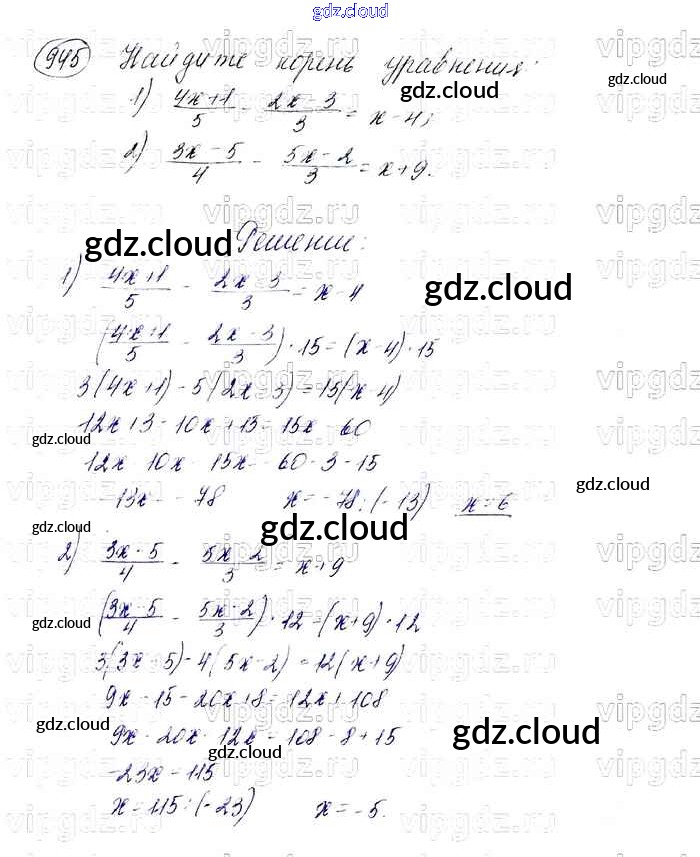 gdz.cloud
945 Найдите корень уравнения:
1) (4x+1)/5 - (2x-3)/3 = x-4;
gdz.cloud
2) (3x-5)/4 - (5x-2)/3 = x+9.
Решение:
gdz.cloud
1) (4x+1)/5 - (2x-3)/3 = x-4
gdz.cloud
((4x+1)/5 - (2x-3)/3) · 15 = (x-4) · 15
3(4x+1) - 5(2x-3) = 15(x-4)
12x+3-10x+15=15x-60
gdz.cloud
12x-10x-15x=-60-3-15
gdz.cloud
-13x=-78 x=-78:(-13) x=6
gdz.cloud
gdz.cloud
2) (3x-5)/4 - (5x-2)/3 = x+9
((3x-5)/4 - (5x-2)/3) · 12 = (x+9) · 12
gdz.cloud
gdz.cloud
3(3x-5)-4(5x-2)=12(x+9)
9x-15-20x+8=12x+108
gdz.cloud
9x-20x-12x=108-8+15
gdz.cloud
gdz.cloud
-23x=115
x=115:(-23) x=-5.